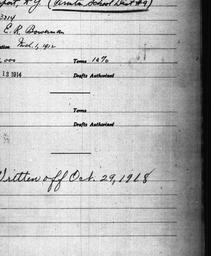 port, Ky (
School Dist #9)
3214
E. R. Bowerman
Mch. 1, 1912
,000 Terms 10%
13 1914 Drafts Authorized
Terms
Drafts Authorized
Written off Oct. 29, 1918